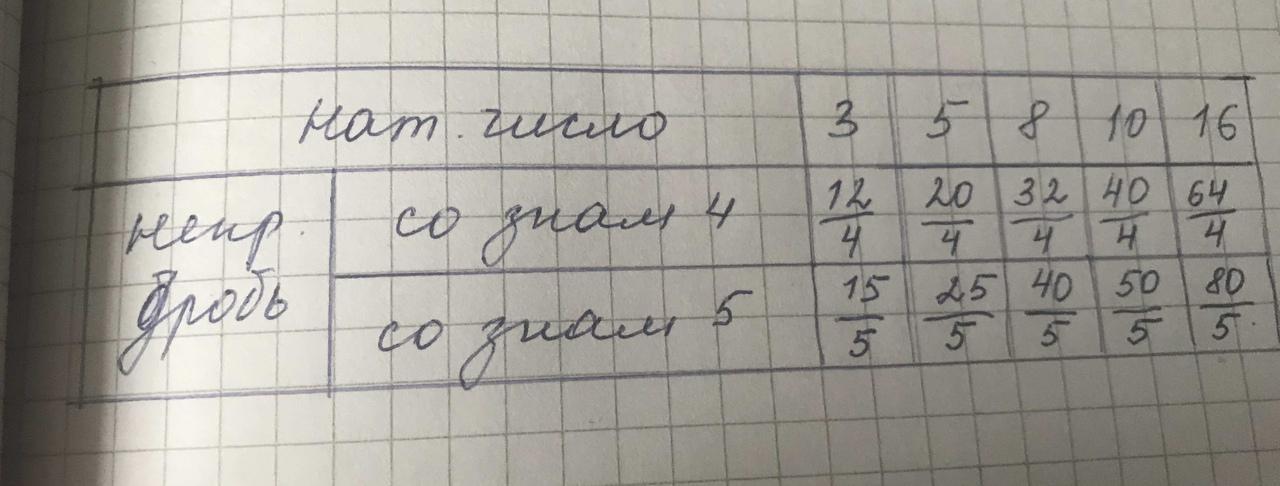 нат. число 3 5 8 10 16
непр. дробь
со знам 4 12/4 20/4 32/4 40/4 64/4
со знам 5 15/5 25/5 40/5 50/5 80/5.